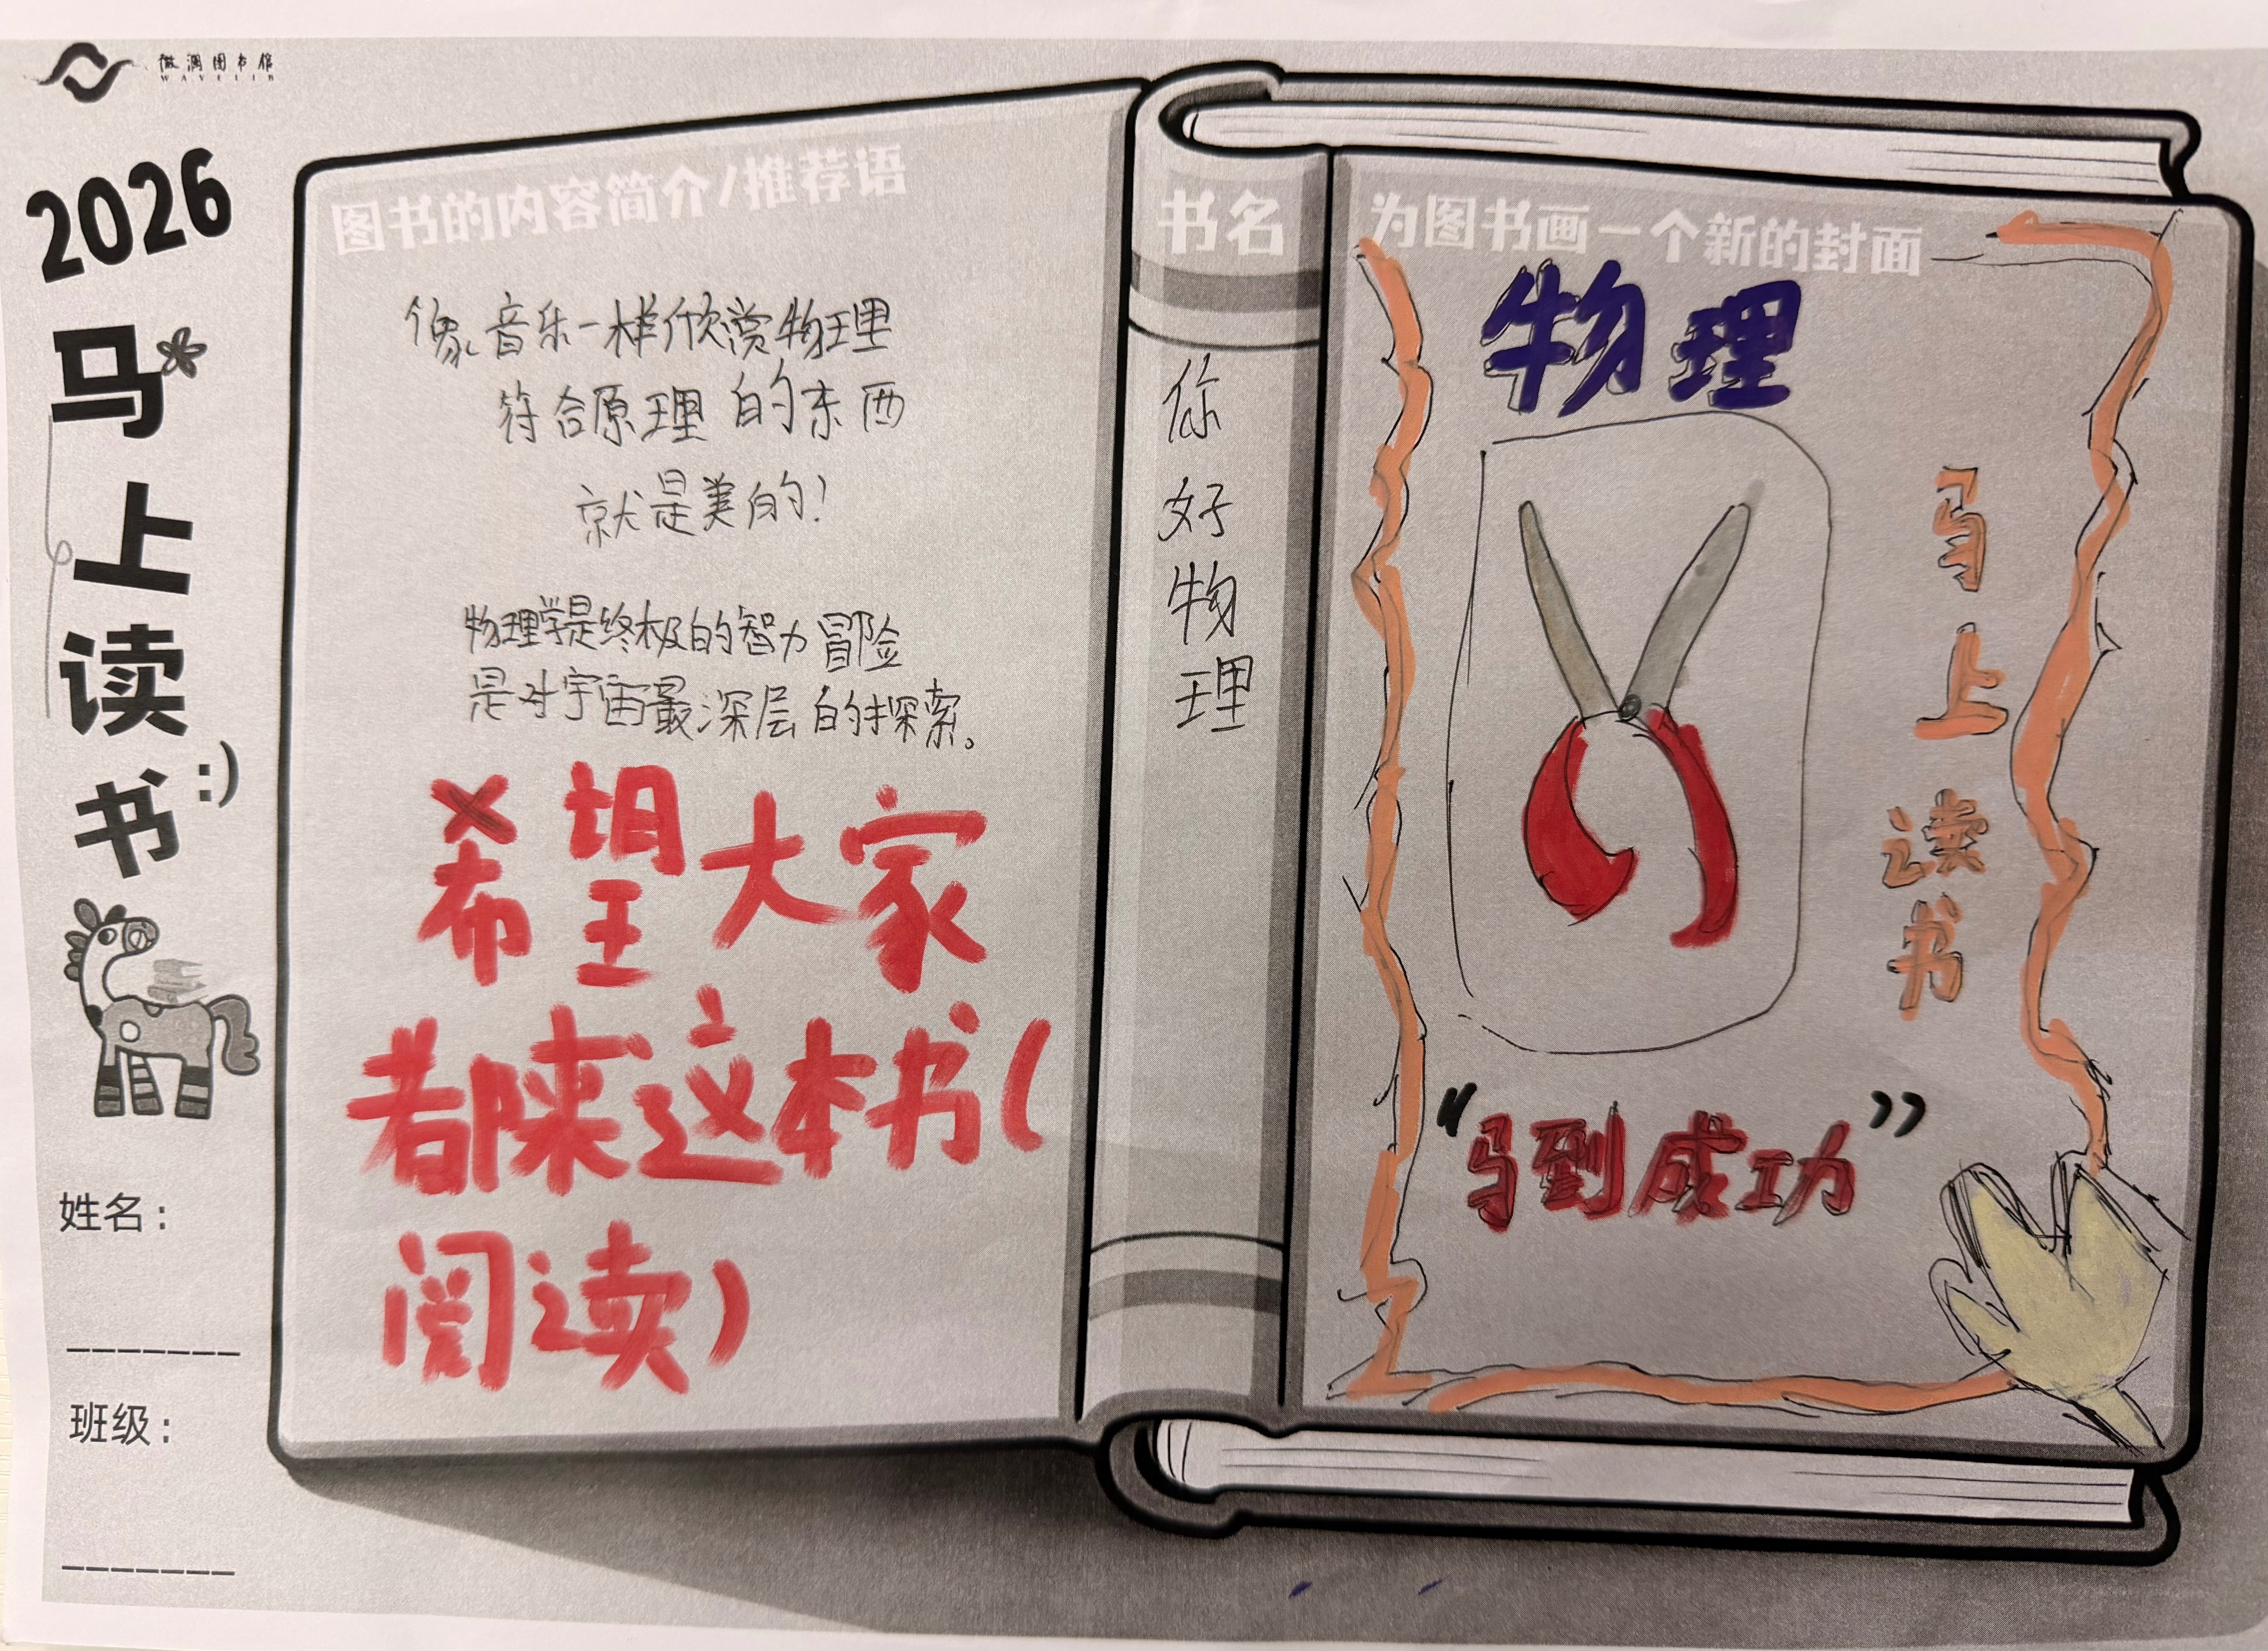 微澜图书馆
WAVELIB
2026
马
上
读
书
:)
姓名：
班级：
图书的内容简介/推荐语
像音乐一样欣赏物理
符合原理的东西
就是美的！
物理学是终极的智力冒险
是对宇宙最深层的探索。
希望大家
都来这本书(
阅读)
书名
你
好
物
理
为图书画一个新的封面
物理
马
上
读
书
“马到成功”